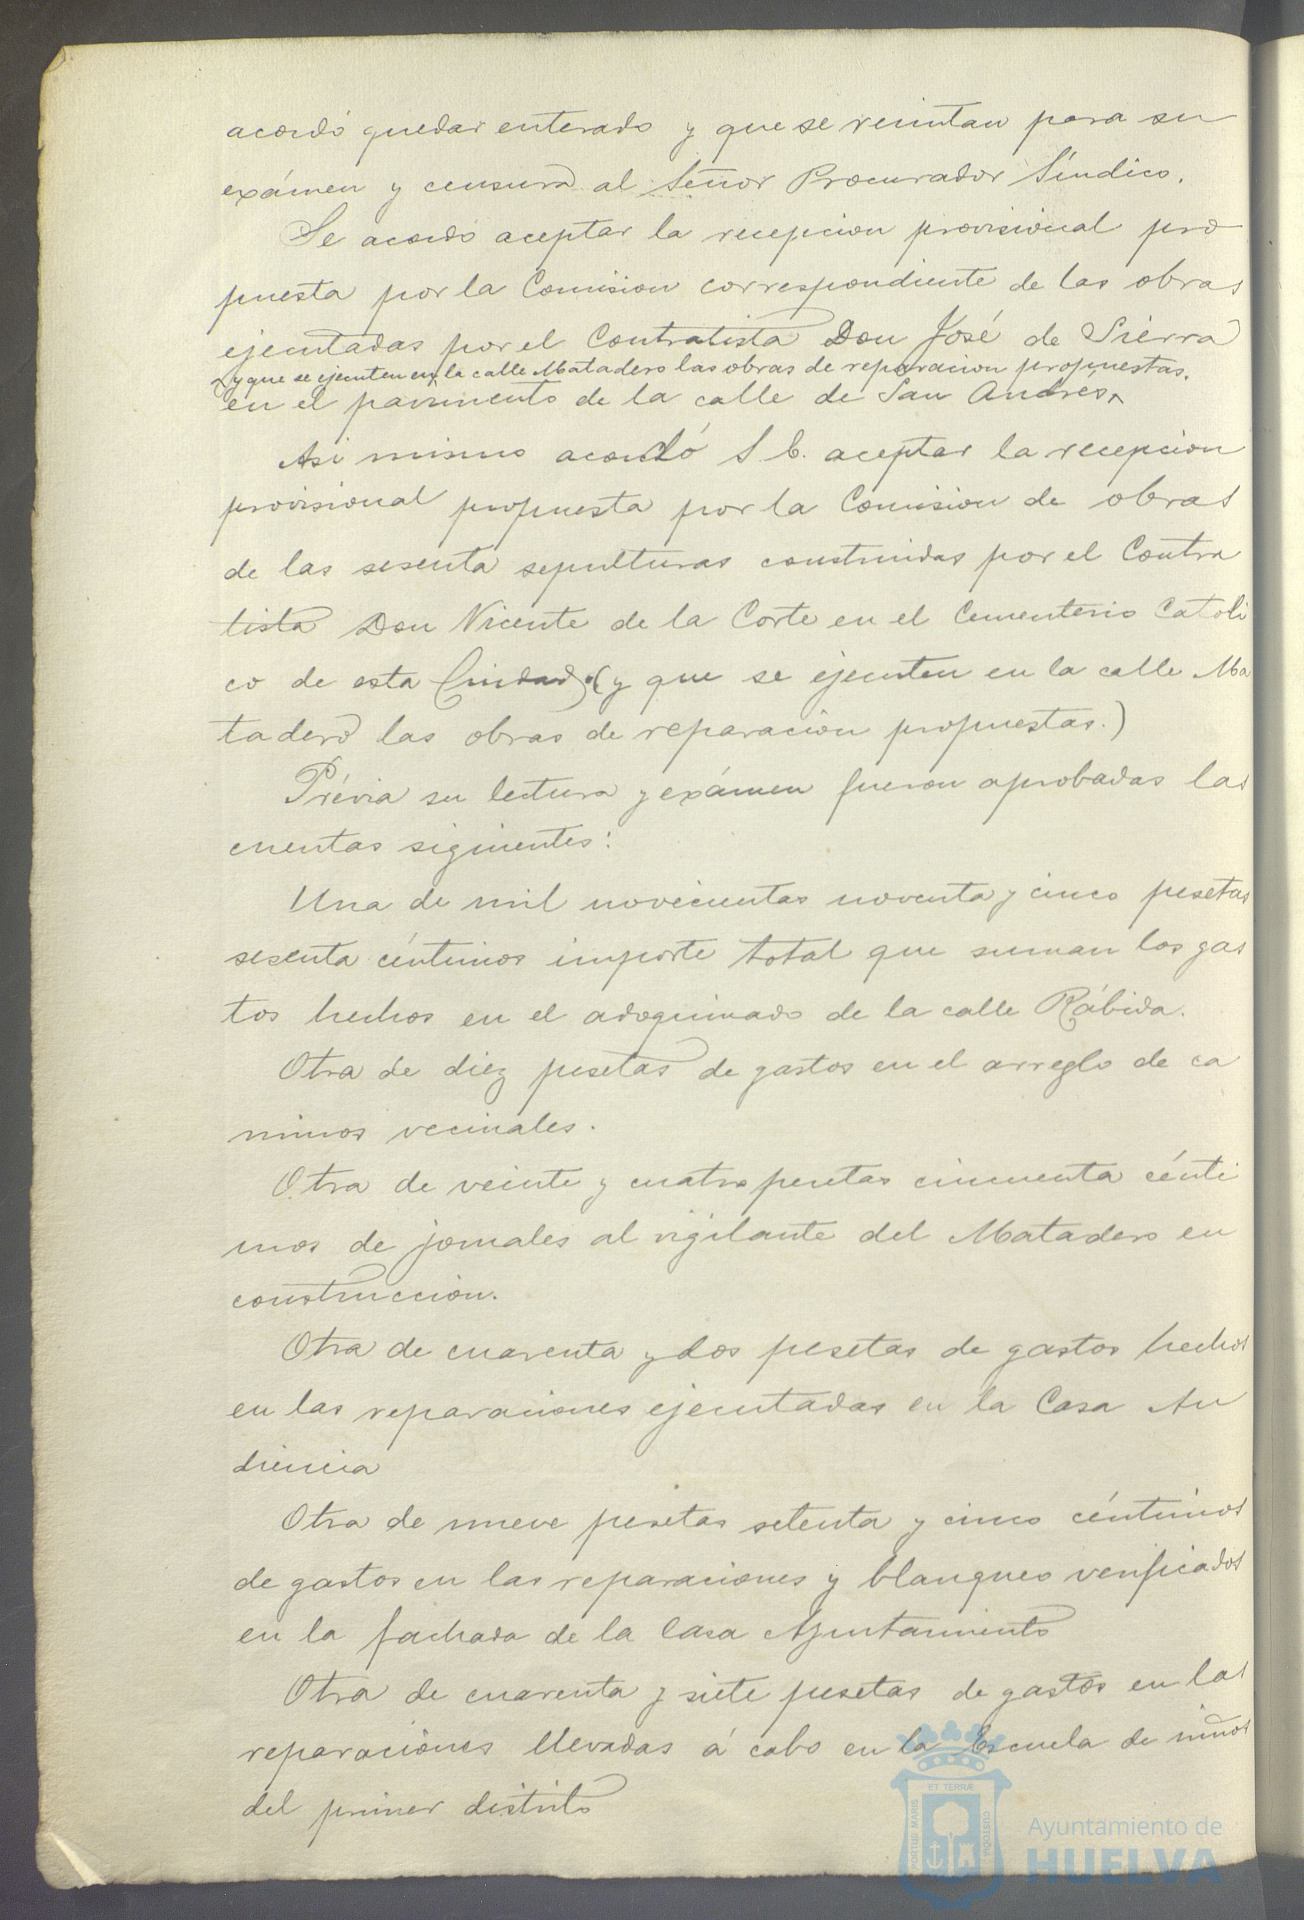 acordó quedar enterado y que se remitan para su
exámen y censura al Señor Procurador Síndico.
Se acordó aceptar la recepcion provisional pro
puesta por la Comision correspondiente de las obras
ejecutadas por el Contratista Don José de Sierra
y que se ejecuten en la calle Matadero las obras de reparacion propuestas.
en el pavimento de la calle de San Andres
Asi mismo acordó S. E. aceptar la recepcion
provisional propuesta por la Comision de obras
de las sesenta sepulturas construidas por el Contra
tista Don Vicente de la Corte en el Cementerio Catoli
co de esta Ciudad (y que se ejecuten en la calle Ma
tadero las obras de reparacion propuestas.)
Prévia su lectura y exámen fueron aprobadas las
cuentas siguientes:
Una de mil novecientas noventa y cinco pesetas
sesenta céntimos importe total que suman los gas
tos hechos en el adoquinado de la calle Rábida.
Otra de diez pesetas de gastos en el arreglo de ca
minos vecinales.
Otra de veinte y cuatro pesetas cincuenta cénti
mos de jornales al vigilante del Matadero en
construccion.
Otra de cuarenta y dos pesetas de gastos hechos
en las reparaciones ejecutadas en la Casa Au
diencia
Otra de nueve pesetas setenta y cinco céntimos
de gastos en las reparaciones y blanqueo verificados
en la fachada de la Casa Ayuntamiento
Otra de cuarenta y siete pesetas de gastos en las
reparaciones llevadas á cabo en la Escuela de niños
del primer distrito
PORTUS MARIS ET TERRÆ CUSTODIA
Ayuntamiento de
HUELVA